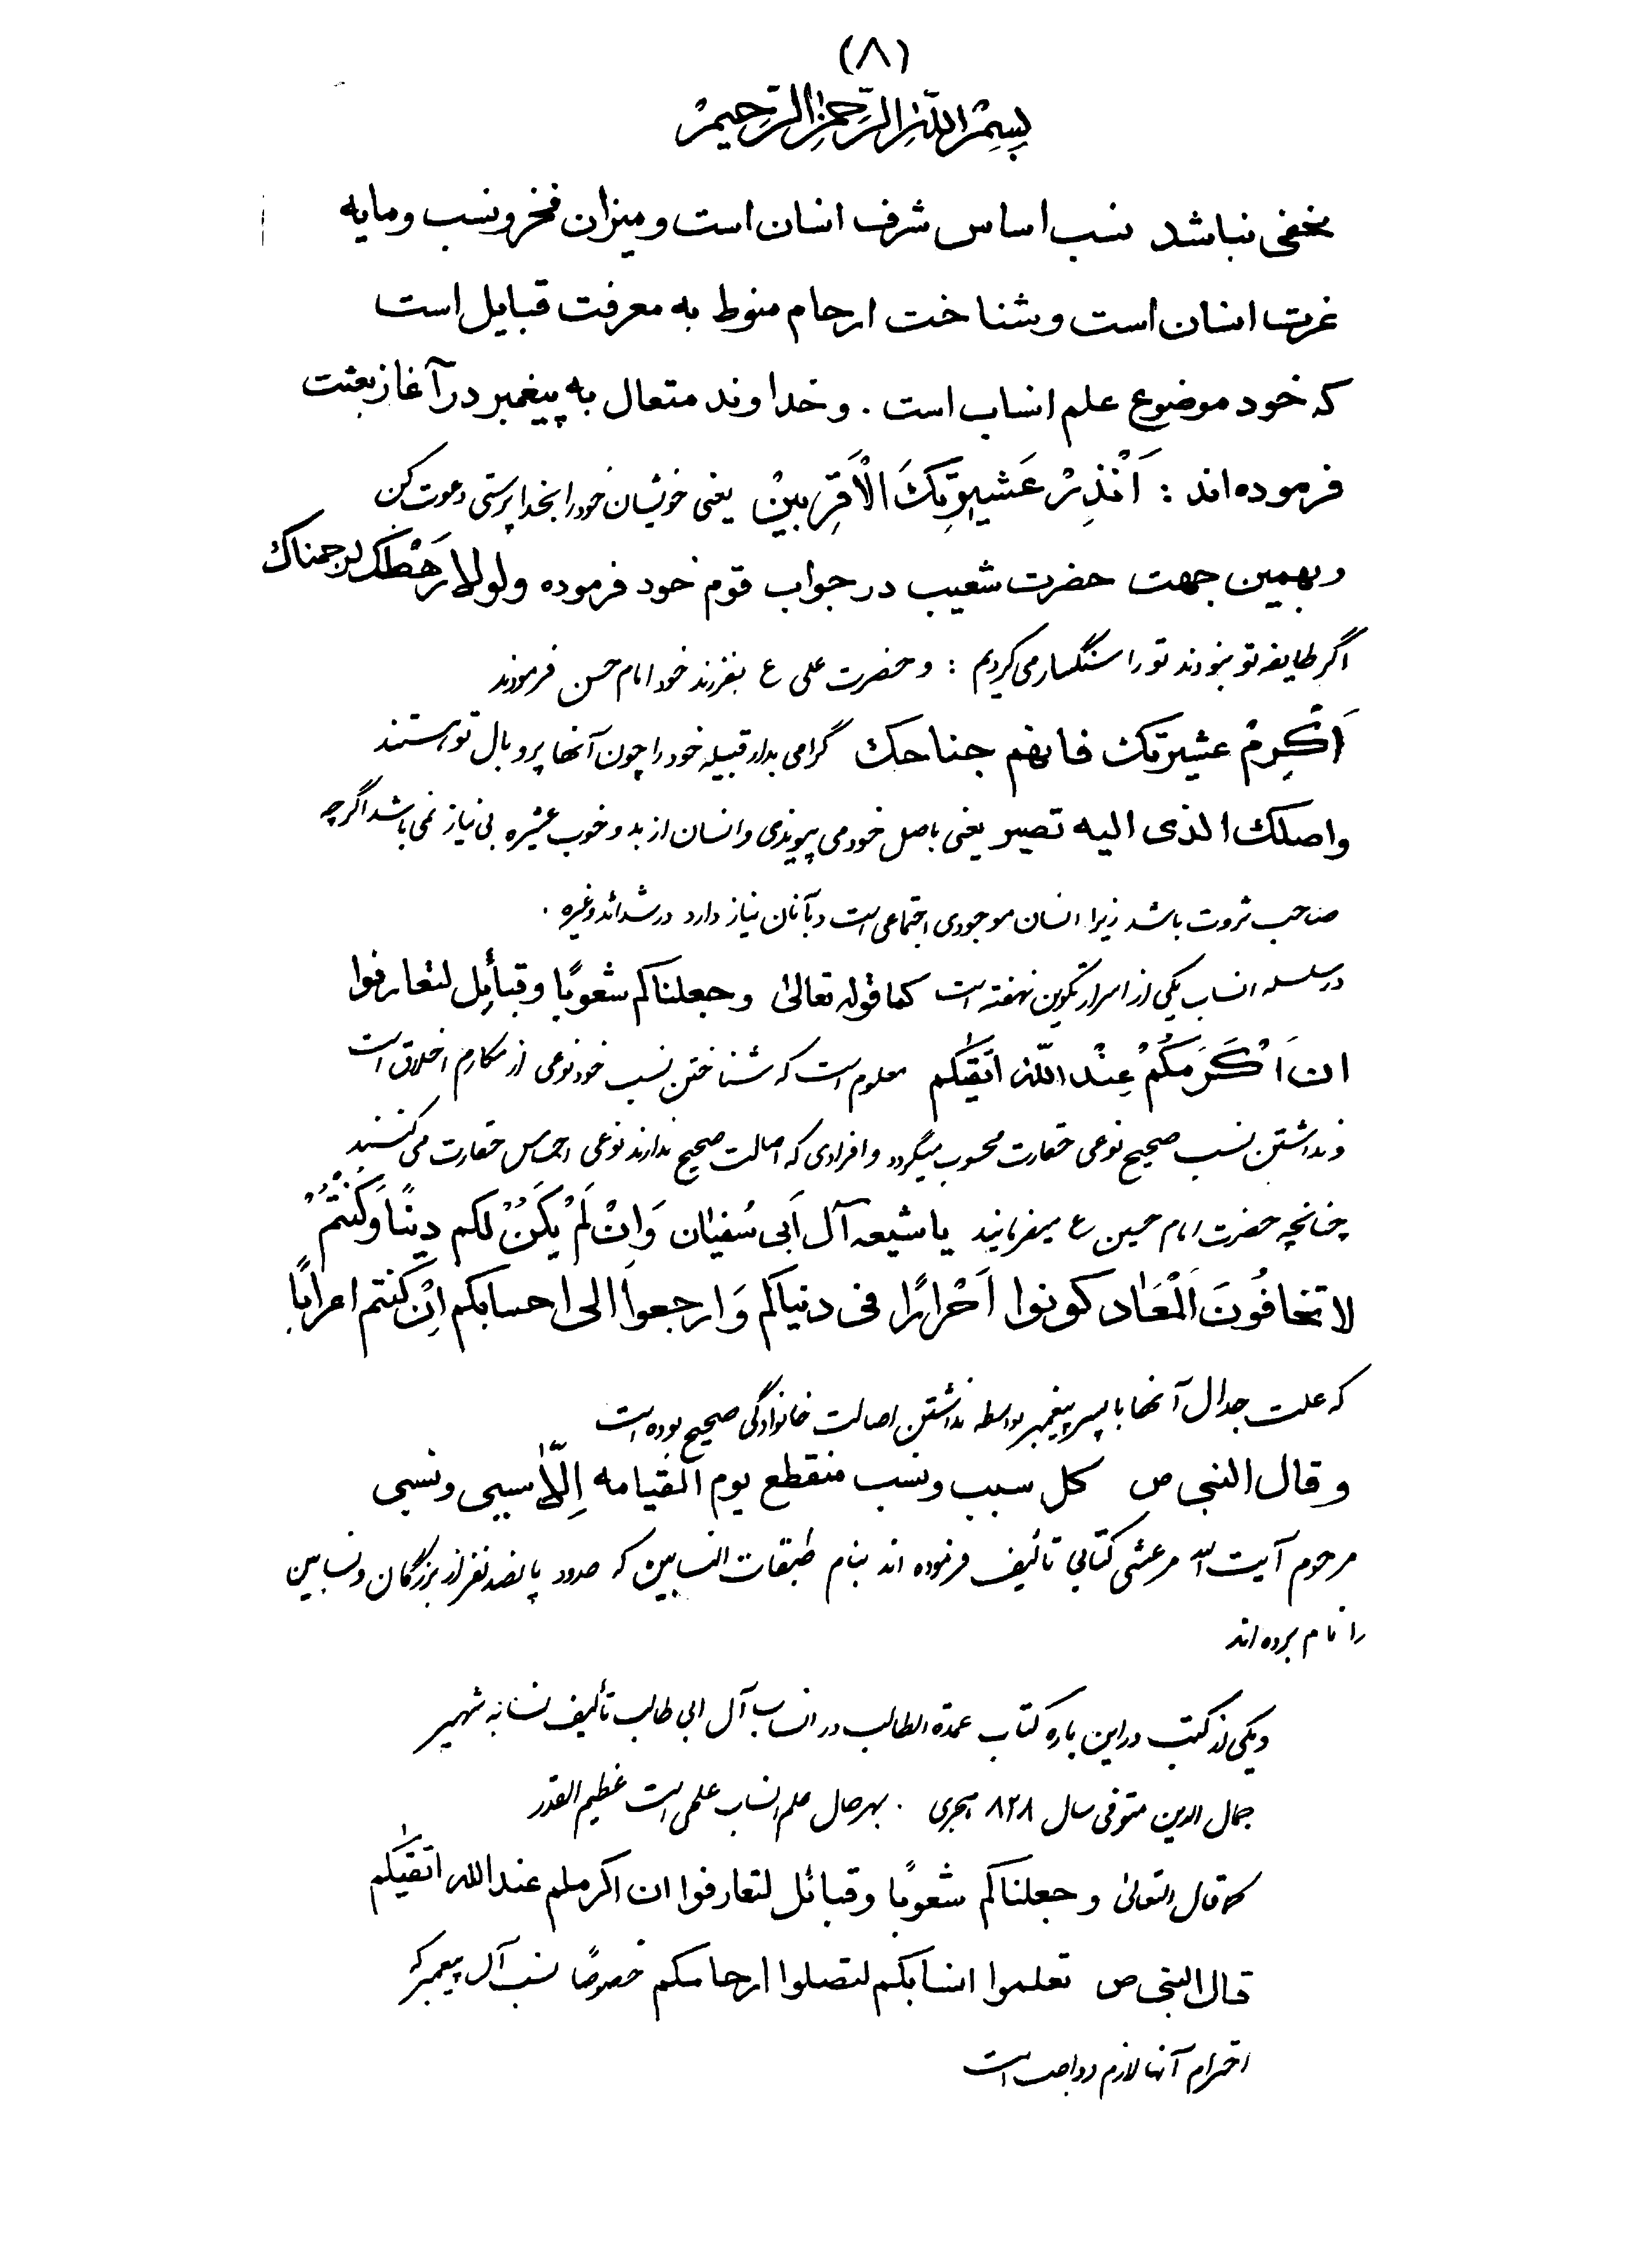 (۸)
بِسْمِ اللّهِ الرَّحْمنِ الرَّحِيمِ
مخفی نباشد نسب اساس شرف انسان است و میزان فخر و نسب و مایه
عزت انسان است و شناخت ارحام منوط به معرفت قبایل است
که خود موضوع علم انساب است . و خداوند متعال به پیغمبر در آغاز بعثت
فرموده‌اند : اَنْذِرْ عَشیرَتِكَ الْاَقْرَبینْ یعنی خویشان خود را بخداپرستی دعوت کن
و بهمین جهت حضرت شعیب در جواب قوم خود فرموده و لولا رَهْطَک لرجمناك
اگر طایفه تو نبودند تو را سنگسار می‌کردیم : و حضرت علی ع بفرزند خود امام حسن فرمودند
اَکْرِمْ عشیرتك فانهم جناحك گرامی بدار قبیله خود را چون آنها پر و بال تو هستند
واصلك الذی الیه تصیر یعنی باصل خود می پیوندی و انسان از بد و خوب عشیره بی نیاز نمی باشد اگر چه
صاحب ثروت باشد زیرا انسان موجودی اجتماعی است و بآنان نیاز دارد در شدائد و غیره .
در سلسله انساب یکی از اسرار تکوین نهفته است کما قوله تعالیٰ و جعلناکم شعوبًا و قبائِل لتعارفوا
ان اَکْرَمَکُمْ عِنْدَ اللّه اتقیٰکم معلوم است که شناختن نسب خود نوعی از مکارم اخلاق است
و نداشتن نسب صحیح نوعی حقارت محسوب میگردد و افرادی که اصالت صحیح ندارند نوعی احساس حقارت می کنند
چنانچه حضرت امام حسین ع میفرمایند یا شیعه آل اَبی سُفیٰان وَ اِنْ لَمْ یَکُنْ لکم دینًا وَ کُنْتُمْ
لا تخافُونَ اَلْمَعٰاد کونوا اَحْرارًا فی دنیاکم وَ ارجعوا الی احسابکم اِنْ کنتم اعرابًا
که علت جدال آنها با پسر پیغمبر بواسطه نداشتن اصالت خانوادگی صحیح بوده است
و قال النبی ص کل سبب و نسب منقطع یوم القیامه اِلّاٰ سببی و نسبی
مرحوم آیت اله مرعشی کتابی تألیف فرموده اند بنام طبقات النسابین که حدود پانصد نفر از بزرگان و نسابین
را نام برده اند
و یکی از کتب در این باره کتاب عمدة الطالب در انساب آل ابی طالب تألیف نسابه شهیر
جمال الدین متوفی سال ۸۲۸ هجری . بهرحال علم انساب علمی است عظیم القدر
کما قال التعالیٰ و جعلناکم شعوبًا و قبائل لتعارفوا ان اکرمکم عند الله اتقیٰکم
قال النبی ص تعلموا انسابکم لتصلوا ارحامکم خصوصًا نسب آل پیغمبر که
احترام آنها لازم و واجب است